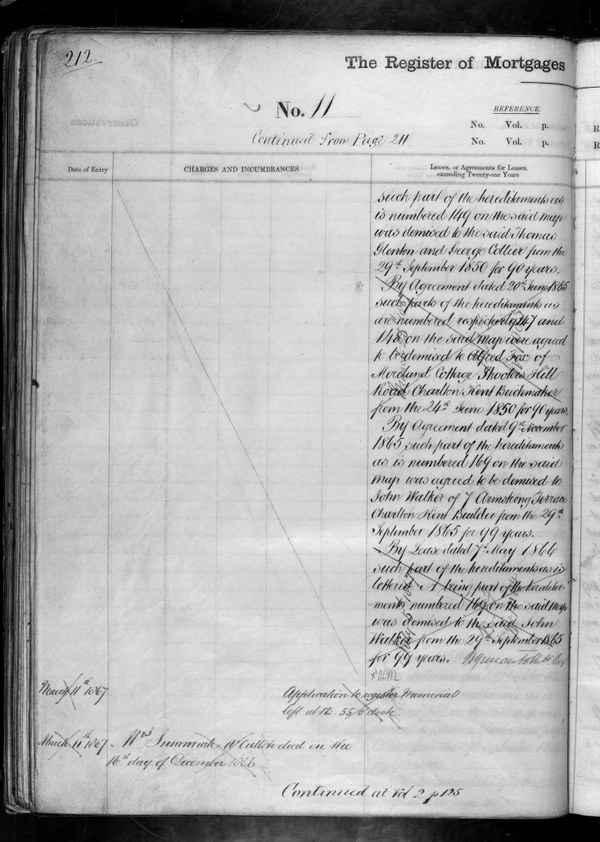 212.
The Register of Mortgages
No. 11
REFERENCE.
No. Vol. p.
Continued from Page 211
No. Vol. p.
Date of Entry
CHARGES AND INCUMBRANCES
Leases, or Agreements for Leases,
exceeding Twenty-one Years
such part of the hereditaments as
is numbered 149 on the said map
was demised to the said Thomas
and George Collier from the
29th September 1850 for 90 years.
By Agreement dated 20th June 1865
such parts of the hereditaments as
are numbered respectively 147 and
148 on the said map were agreed
to be demised to Alfred Fox of
Moreland Cottage Shooters Hill
Road Charlton Kent
from the 24th June 1850 for 90 years.
By Agreement dated 9th November
1865 such part of the hereditaments
as is numbered 169 on the said
map was agreed to be demised to
John Walker of 7 Armstrong Terrace
Charlton Kent Builder from the 29th
September 1865 for 99 years.
By Lease dated 7th May 1866
such part of the hereditaments as is
lettered A being part of the heredita-
ments numbered 169 on the said map
was demised to the said John
Walker from the 29th September 1865
for 99 years.
March 11th 1867
Application to register Memorial
left at 12.55 o'clock
March 11th 1867
Mrs Susannah died on the
16th day of December 1866
Continued at Vol 2 p 125